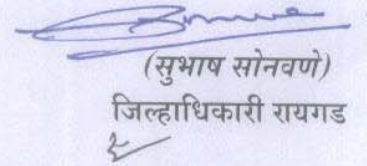 (सुभाष सोनवणे)
जिल्हाधिकारी रायगड